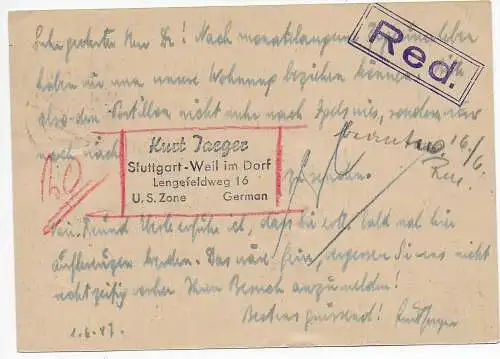 Sehr geehrter Herr Dr.! Nach monatelangem
Red.
haben wir nun unsere Wohnung beziehen können.
also den Postillon nicht mehr nach sondern nur
noch nach
16/6.
Kurt Jaeger
Stuttgart-Weil im Dorf
Lengefeldweg 16
U.S. Zone German
zu senden.
Von Freund erfuhr ich, dass Sie evtl. bald mal hier
auftauchen werden. Das wäre fein, vergessen Sie nur nicht
rechtzeitig vorher Ihren Besuch anzumelden!
Bestens grüssend! Kurt Jaeger
1.6.47.